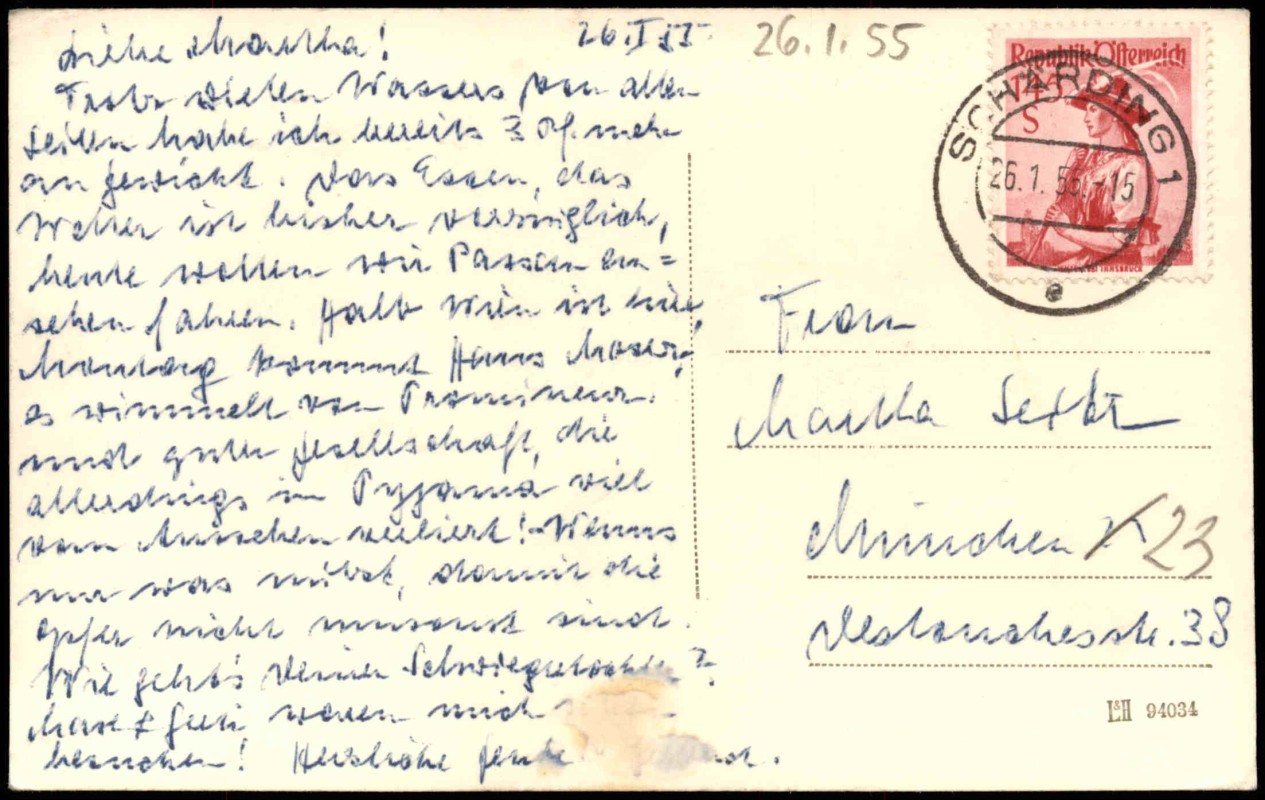 Liebe Martha!
26.I 55
26.1.55
Trotz vielen Wassers von allen
Seiten habe ich bereits 3 Pf. mehr
an Gewicht. Das Essen, das
Wetter ist bisher vorzüglich,
heute wollen wir Passau an=
sehen fahren. Halb Wien ist hier,
Montag kommt Hans Moser,
es wimmelt von Prominenz.
und guter Gesellschaft, die
allerdings im Pyjama viel
vom Aussehen verliert! Wenns
nur was nützt, damit die
Opfer nicht umsonst sind.
Wie geht's Deiner Schwiegertochter?
Max & waren mich
besuchen! Herzliche
Republik Österreich
1.45
S
BEI INNSBRUCK
SCHÄRDING 1
26.1.55.-15
e
Frau
Martha
München 23
38
L&H 94034